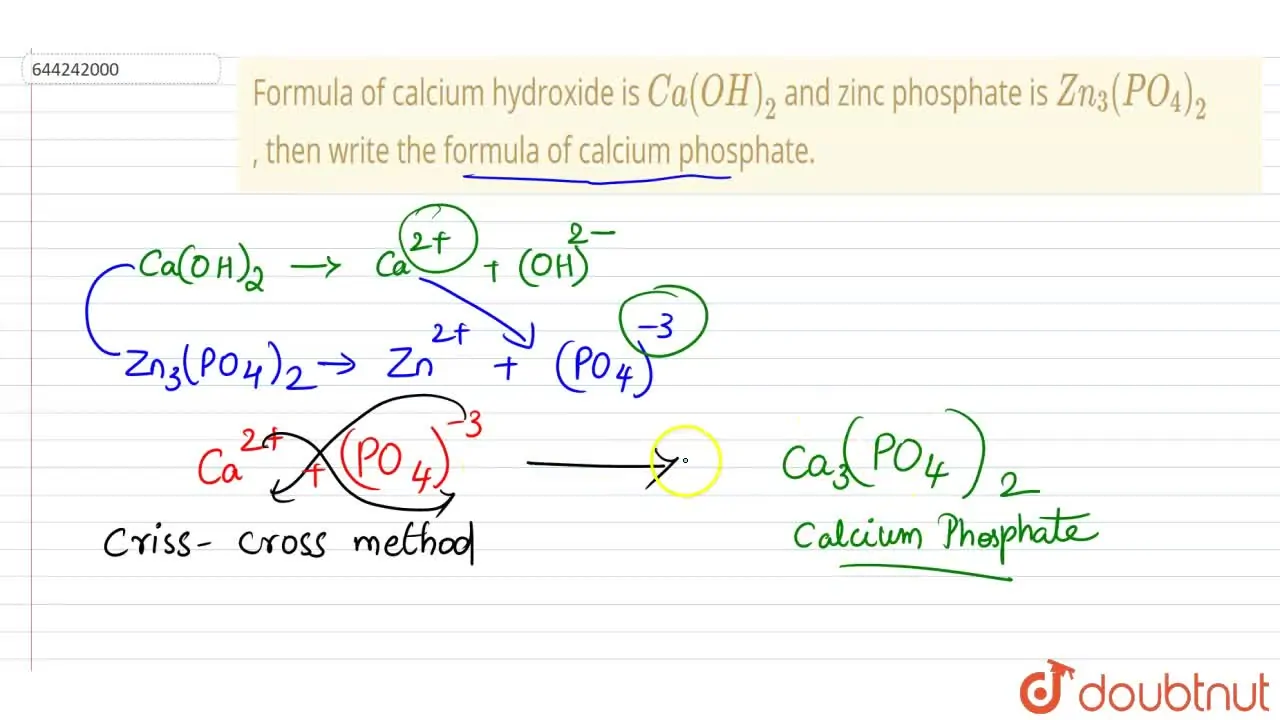 644242000
Formula of calcium hydroxide is Ca(OH)₂ and zinc phosphate is Zn₃(PO₄)₂
, then write the formula of calcium phosphate.
Ca(OH)₂ → Ca²⁺ + (OH)²⁻
Zn₃(PO₄)₂ → Zn²⁺ + (PO₄)⁻³
Ca²⁺ + (PO₄)⁻³ → Ca₃(PO₄)₂
Criss-cross method
Calcium Phosphate
doubtnut